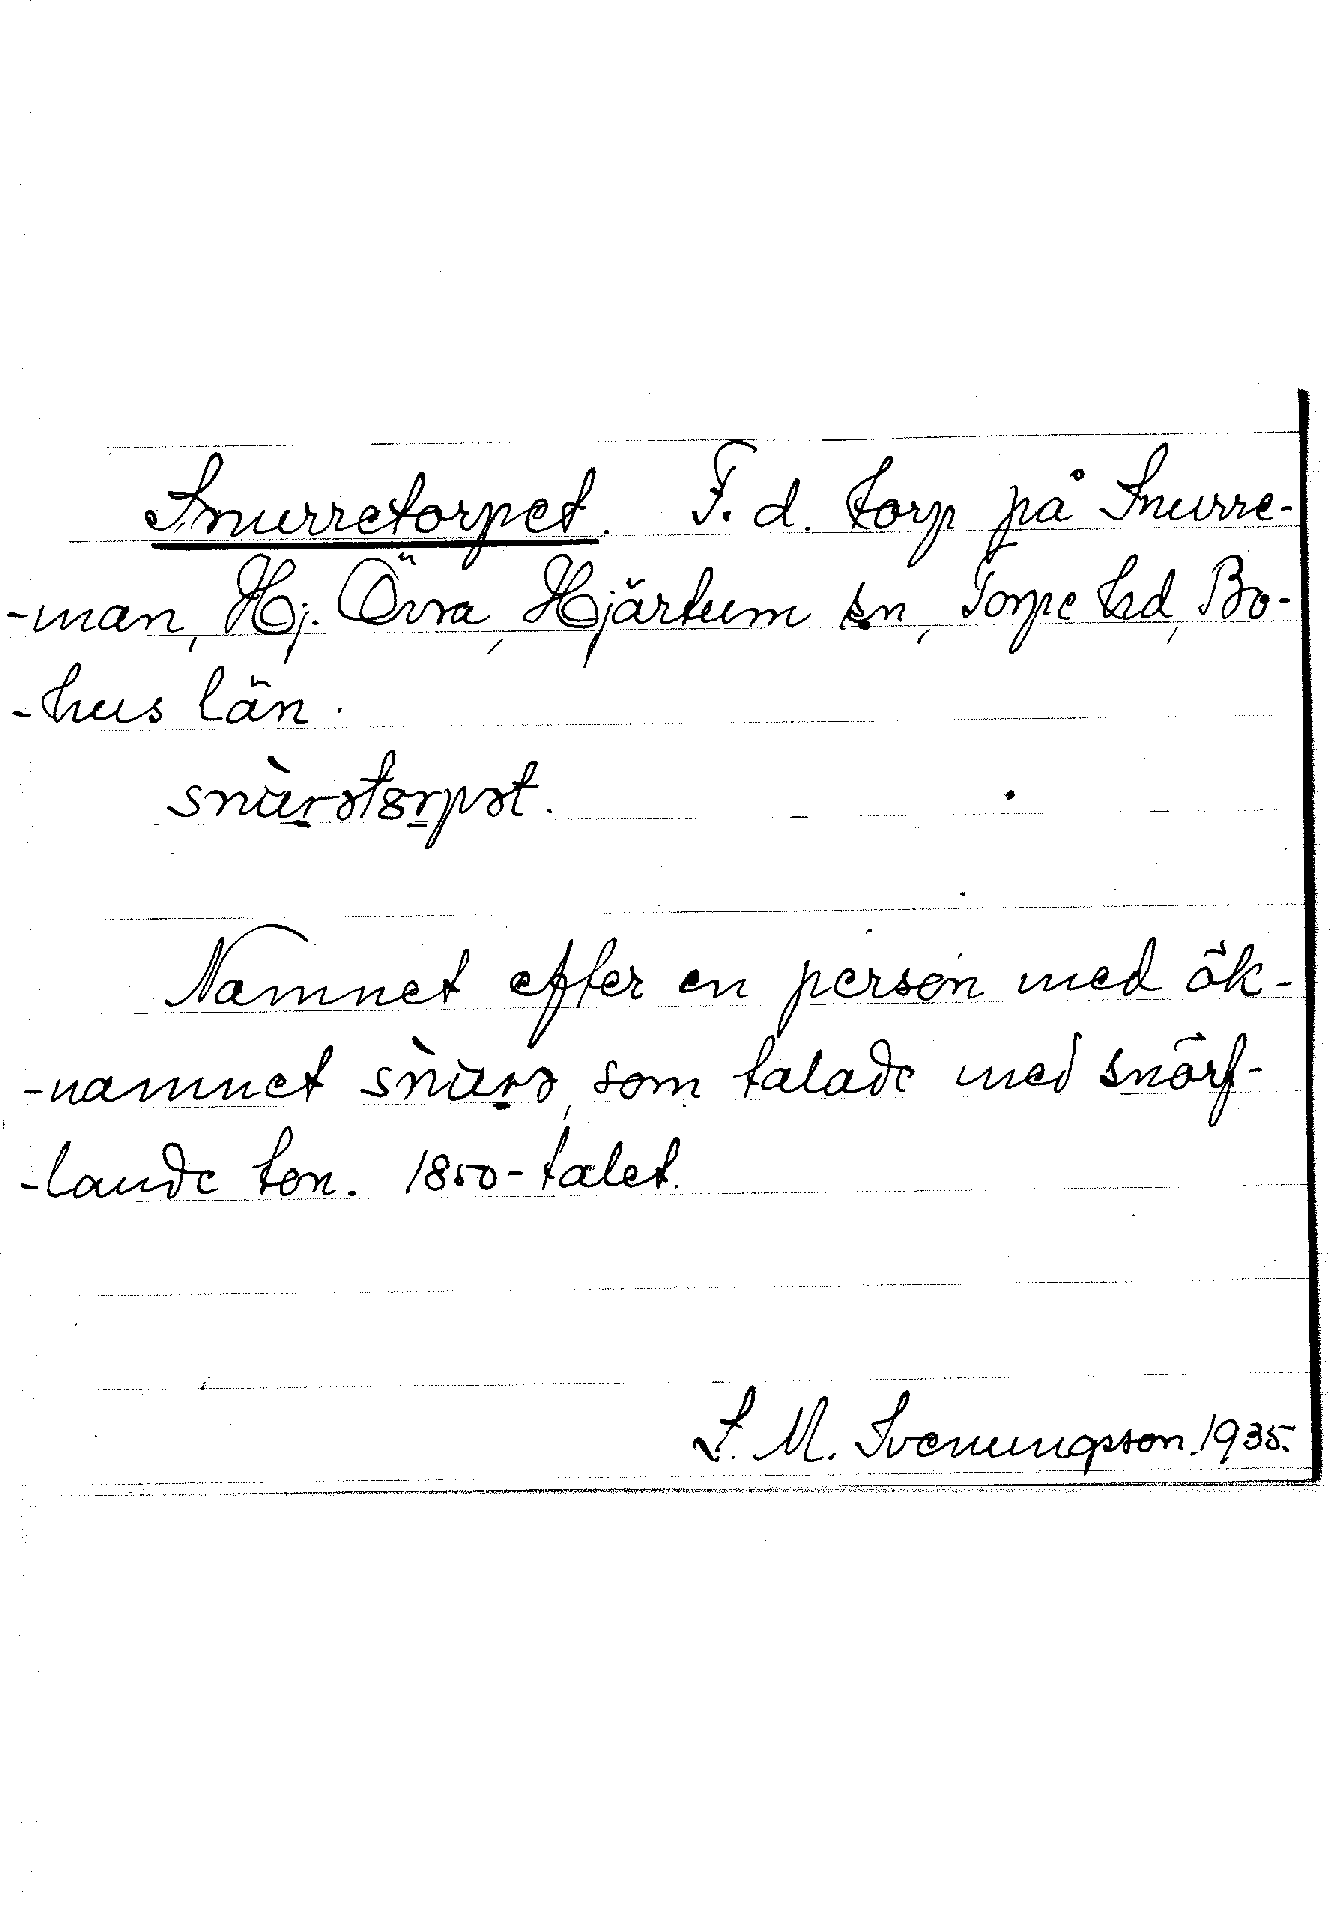 Snurretorpet. F. d. torp på Snurre-
-man, Hj. Övra, Hjärtum sn, Torpe hd, Bo-
-hus län.
snùr̲ət8r̲pət.
Namnet efter en person med ök-
-namnet snùr̲ə, som talade med snörf-
-lande ton. 1850-talet.
L. M. Svenungsson. 1935.